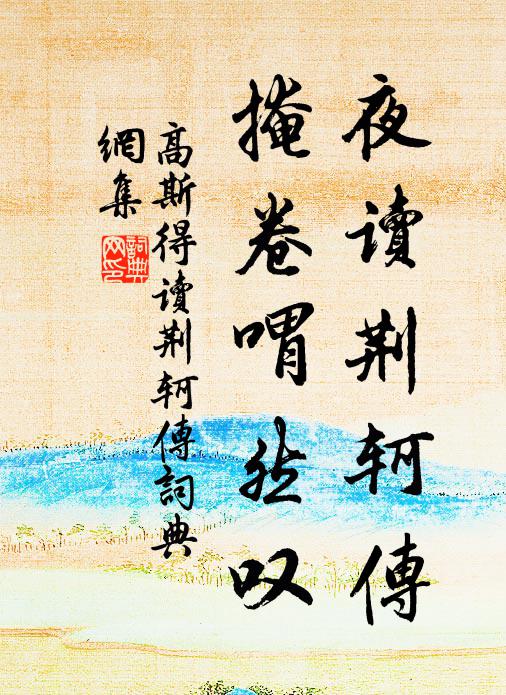 夜读荆轲傳
掩卷喟然叹
高斯得读荆轲傳詞典
網集
詞典
网印